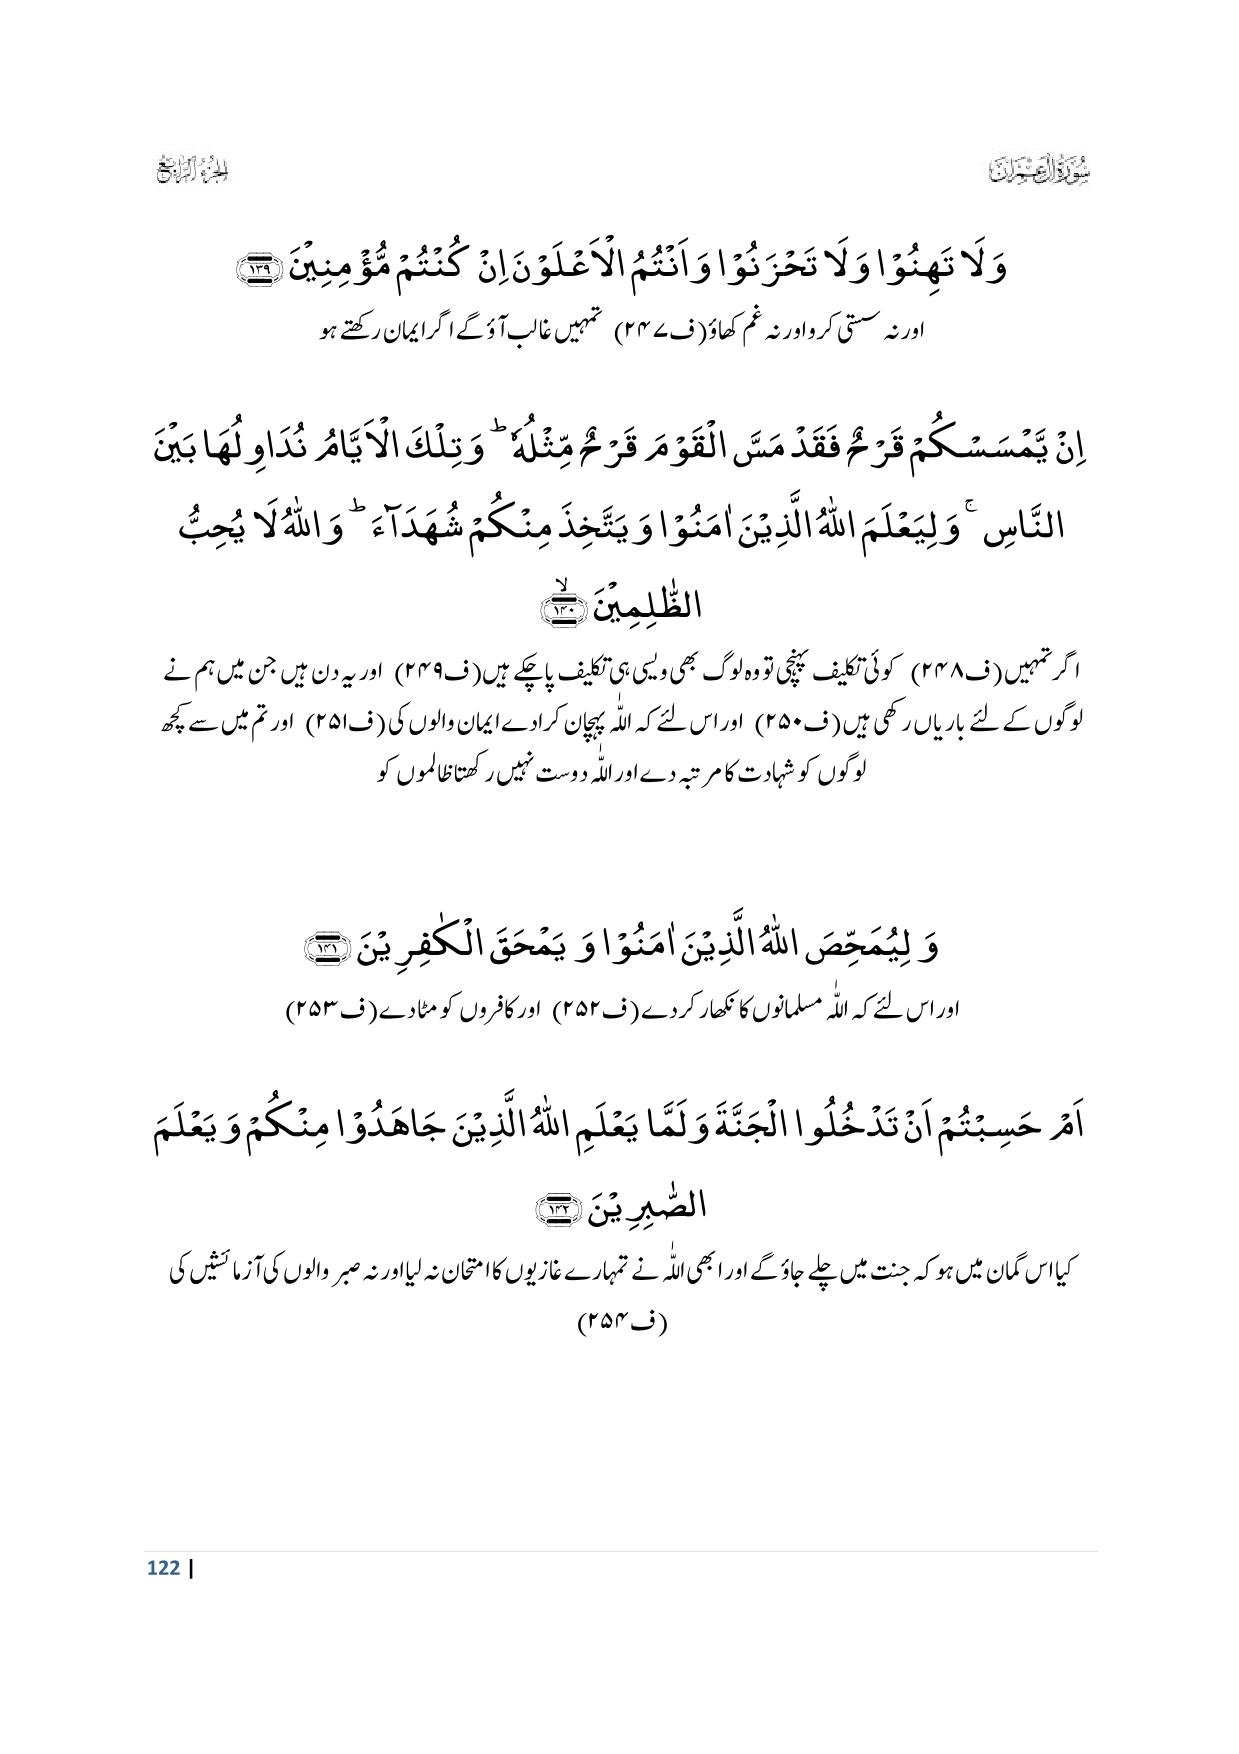 سُوْرَةُ اٰلِ عِمْرٰن
الجزء الرابع
وَلَا تَهِنُوْا وَلَا تَحْزَنُوْا وَاَنْتُمُ الْاَعْلَوْنَ اِنْ كُنْتُمْ مُّؤْمِنِيْنَ ﴿۱۳۹﴾
اور نہ سستی کرو اور نہ غم کھاؤ (ف۲۴۷) تمہیں غالب آؤ گے اگر ایمان رکھتے ہو
اِنْ يَّمْسَسْكُمْ قَرْحٌ فَقَدْ مَسَّ الْقَوْمَ قَرْحٌ مِّثْلُهٗ ؕ وَتِلْكَ الْاَيَّامُ نُدَاوِلُهَا بَيْنَ
النَّاسِ ۚ وَلِيَعْلَمَ اللّٰهُ الَّذِيْنَ اٰمَنُوْا وَيَتَّخِذَ مِنْكُمْ شُهَدَآءَ ؕ وَاللّٰهُ لَا يُحِبُّ
الظّٰلِمِيْنَ ۙ﴿۱۴۰﴾
اگر تمہیں (ف۲۴۸) کوئی تکلیف پہنچی تو وہ لوگ بھی ویسی ہی تکلیف پا چکے ہیں (ف۲۴۹) اور یہ دن ہیں جن میں ہم نے
لوگوں کے لئے باریاں رکھی ہیں (ف۲۵۰) اور اس لئے کہ اللّٰہ پہچان کرادے ایمان والوں کی (ف۲۵۱) اور تم میں سے کچھ
لوگوں کو شہادت کا مرتبہ دے اور اللّٰہ دوست نہیں رکھتا ظالموں کو
وَلِيُمَحِّصَ اللّٰهُ الَّذِيْنَ اٰمَنُوْا وَيَمْحَقَ الْكٰفِرِيْنَ ﴿۱۴۱﴾
اور اس لئے کہ اللّٰہ مسلمانوں کا نکھار کردے (ف۲۵۲) اور کافروں کو مٹا دے (ف۲۵۳)
اَمْ حَسِبْتُمْ اَنْ تَدْخُلُوا الْجَنَّةَ وَلَمَّا يَعْلَمِ اللّٰهُ الَّذِيْنَ جَاهَدُوْا مِنْكُمْ وَيَعْلَمَ
الصّٰبِرِيْنَ ﴿۱۴۲﴾
کیا اس گمان میں ہو کہ جنت میں چلے جاؤ گے اور ابھی اللّٰہ نے تمہارے غازیوں کا امتحان نہ لیا اور نہ صبر والوں کی آزمائشیں کی
(ف۲۵۴)
122 |